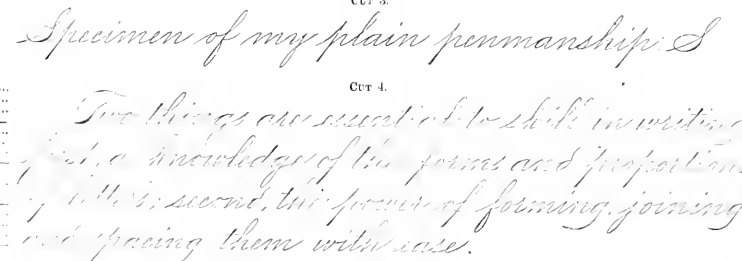 CUT 3.
Specimen of my plain penmanship. S
CUT 4.
Two things are essential to skill in writing
first, a knowledge of the forms and proportions
of letters; second, the power of forming, joining
and spacing them with ease.